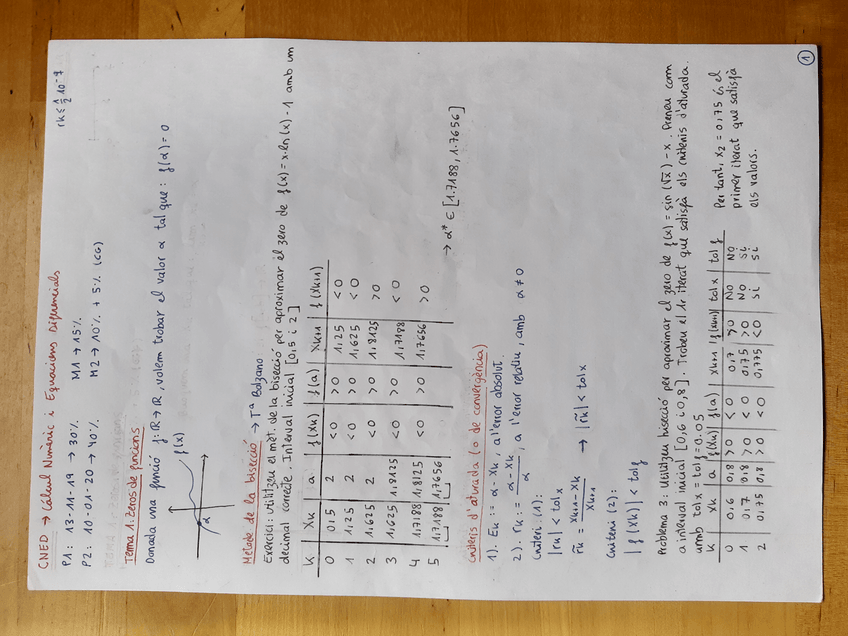 CNED → Càlcul Numèric i Equacions Diferencials
P1: 13-11-19 → 30%   M1 → 15%   rk ≤ 1/2 10^-9
P2: 10-01-20 → 40%   M2 → 10% + 5% (CG)
Tema 1: Zeros de funcions
Donada una funció f: ℝ→ℝ, volem trobar el valor α tal que: f(α) = 0
f(x)
α
Mètode de la bisecció → Tª Bolzano
Exercici: utilitzeu el mèt. de la bisecció per aproximar el zero de f(x) = x·ln(x) - 1 amb un
decimal correcte. Interval inicial [0,5 i 2]
K | Xk | a | f(Xk) | f(a) | Xk+1 | f(Xk+1)
0 | 0,5 | 2 | <0 | >0 | 1,25 | <0
1 | 1,25 | 2 | <0 | >0 | 1,625 | <0
2 | 1,625 | 2 | <0 | >0 | 1,8125 | >0
3 | 1,625 | 1,8125 | <0 | >0 | 1,7188 | <0
4 | 1,7188 | 1,8125 | <0 | >0 | 1,7656 | >0
5 | 1,7188 | 1,7656
→ α* ∈ [1.7188, 1.7656]
Criteris d'aturada (o de convergència)
1). Ek := α - Xk, a l'error absolut.
2). rk := α - Xk / α, a l'error relatiu, amb α ≠ 0
Criteri (1):
|rk| < tolx
r̃k = Xk+1 - Xk / Xk+1 → |r̃k| < tolx
Criteri (2):
|f(Xk)| < tolf
Problema 3: utilitzeu bisecció per aproximar el zero de f(x) = sin(√x) - x. Preneu com
a interval inicial [0,6 i 0,8]. Trobeu el 1r iterat que satisfà els criteris d'aturada.
amb tolx = tolf = 0.05
K | Xk | a | f(Xk) | f(a) | Xk+1 | f(Xk+1) | tolx | tolf
0 | 0,6 | 0,8 | >0 | <0 | 0,7 | >0 | No | No
1 | 0,7 | 0,8 | >0 | <0 | 0,75 | >0 | No | Sí
2 | 0,75 | 0,8 | >0 | <0 | 0,775 | <0 | Sí | Sí
Per tant, x2 = 0,75 és el
primer iterat que satisfà
els valors.
1